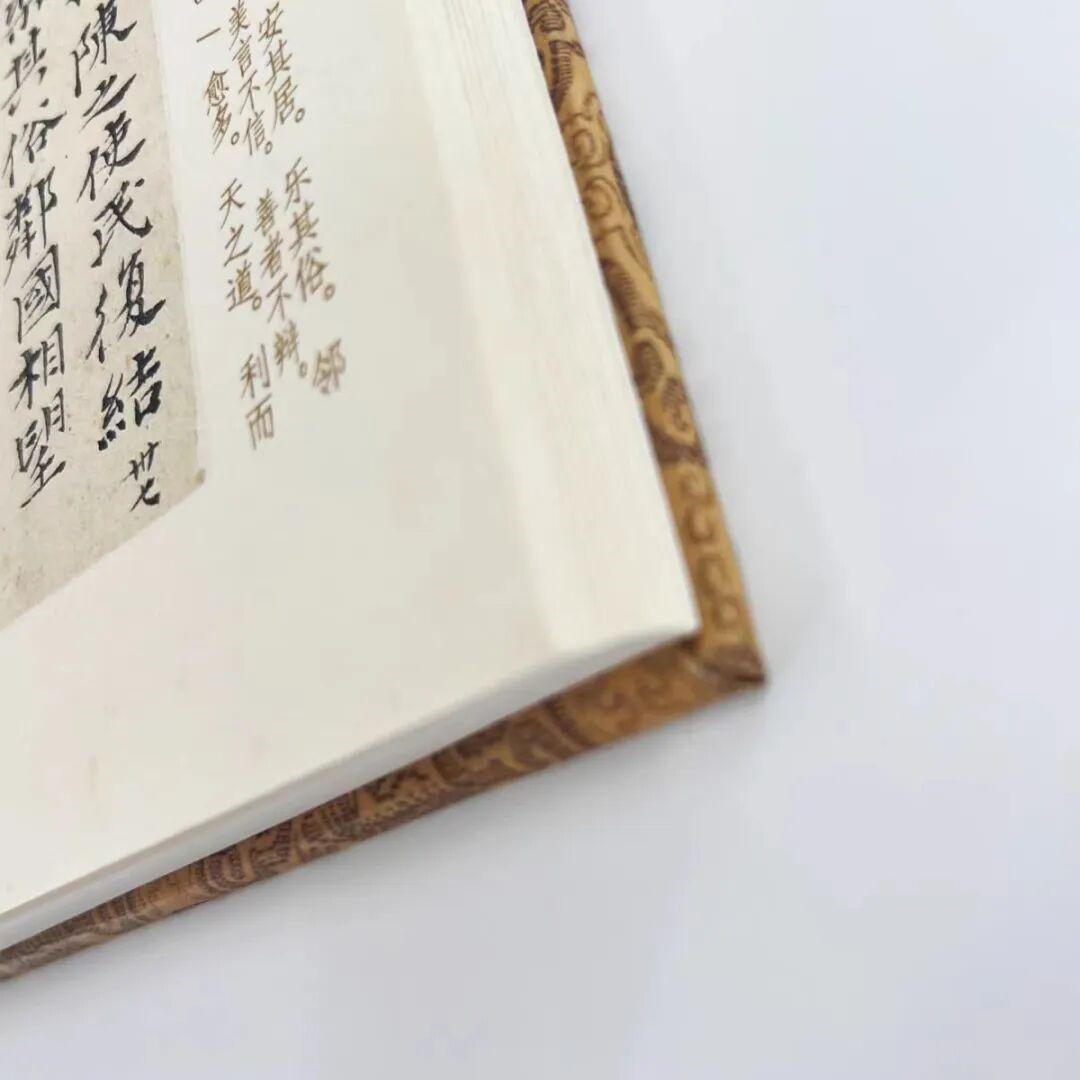 安其居。 乐其俗。 邻
美言不信。 善者不辩。
愈多。 天之道。 利而
陳之使民復結 卅七
其俗鄰國相望